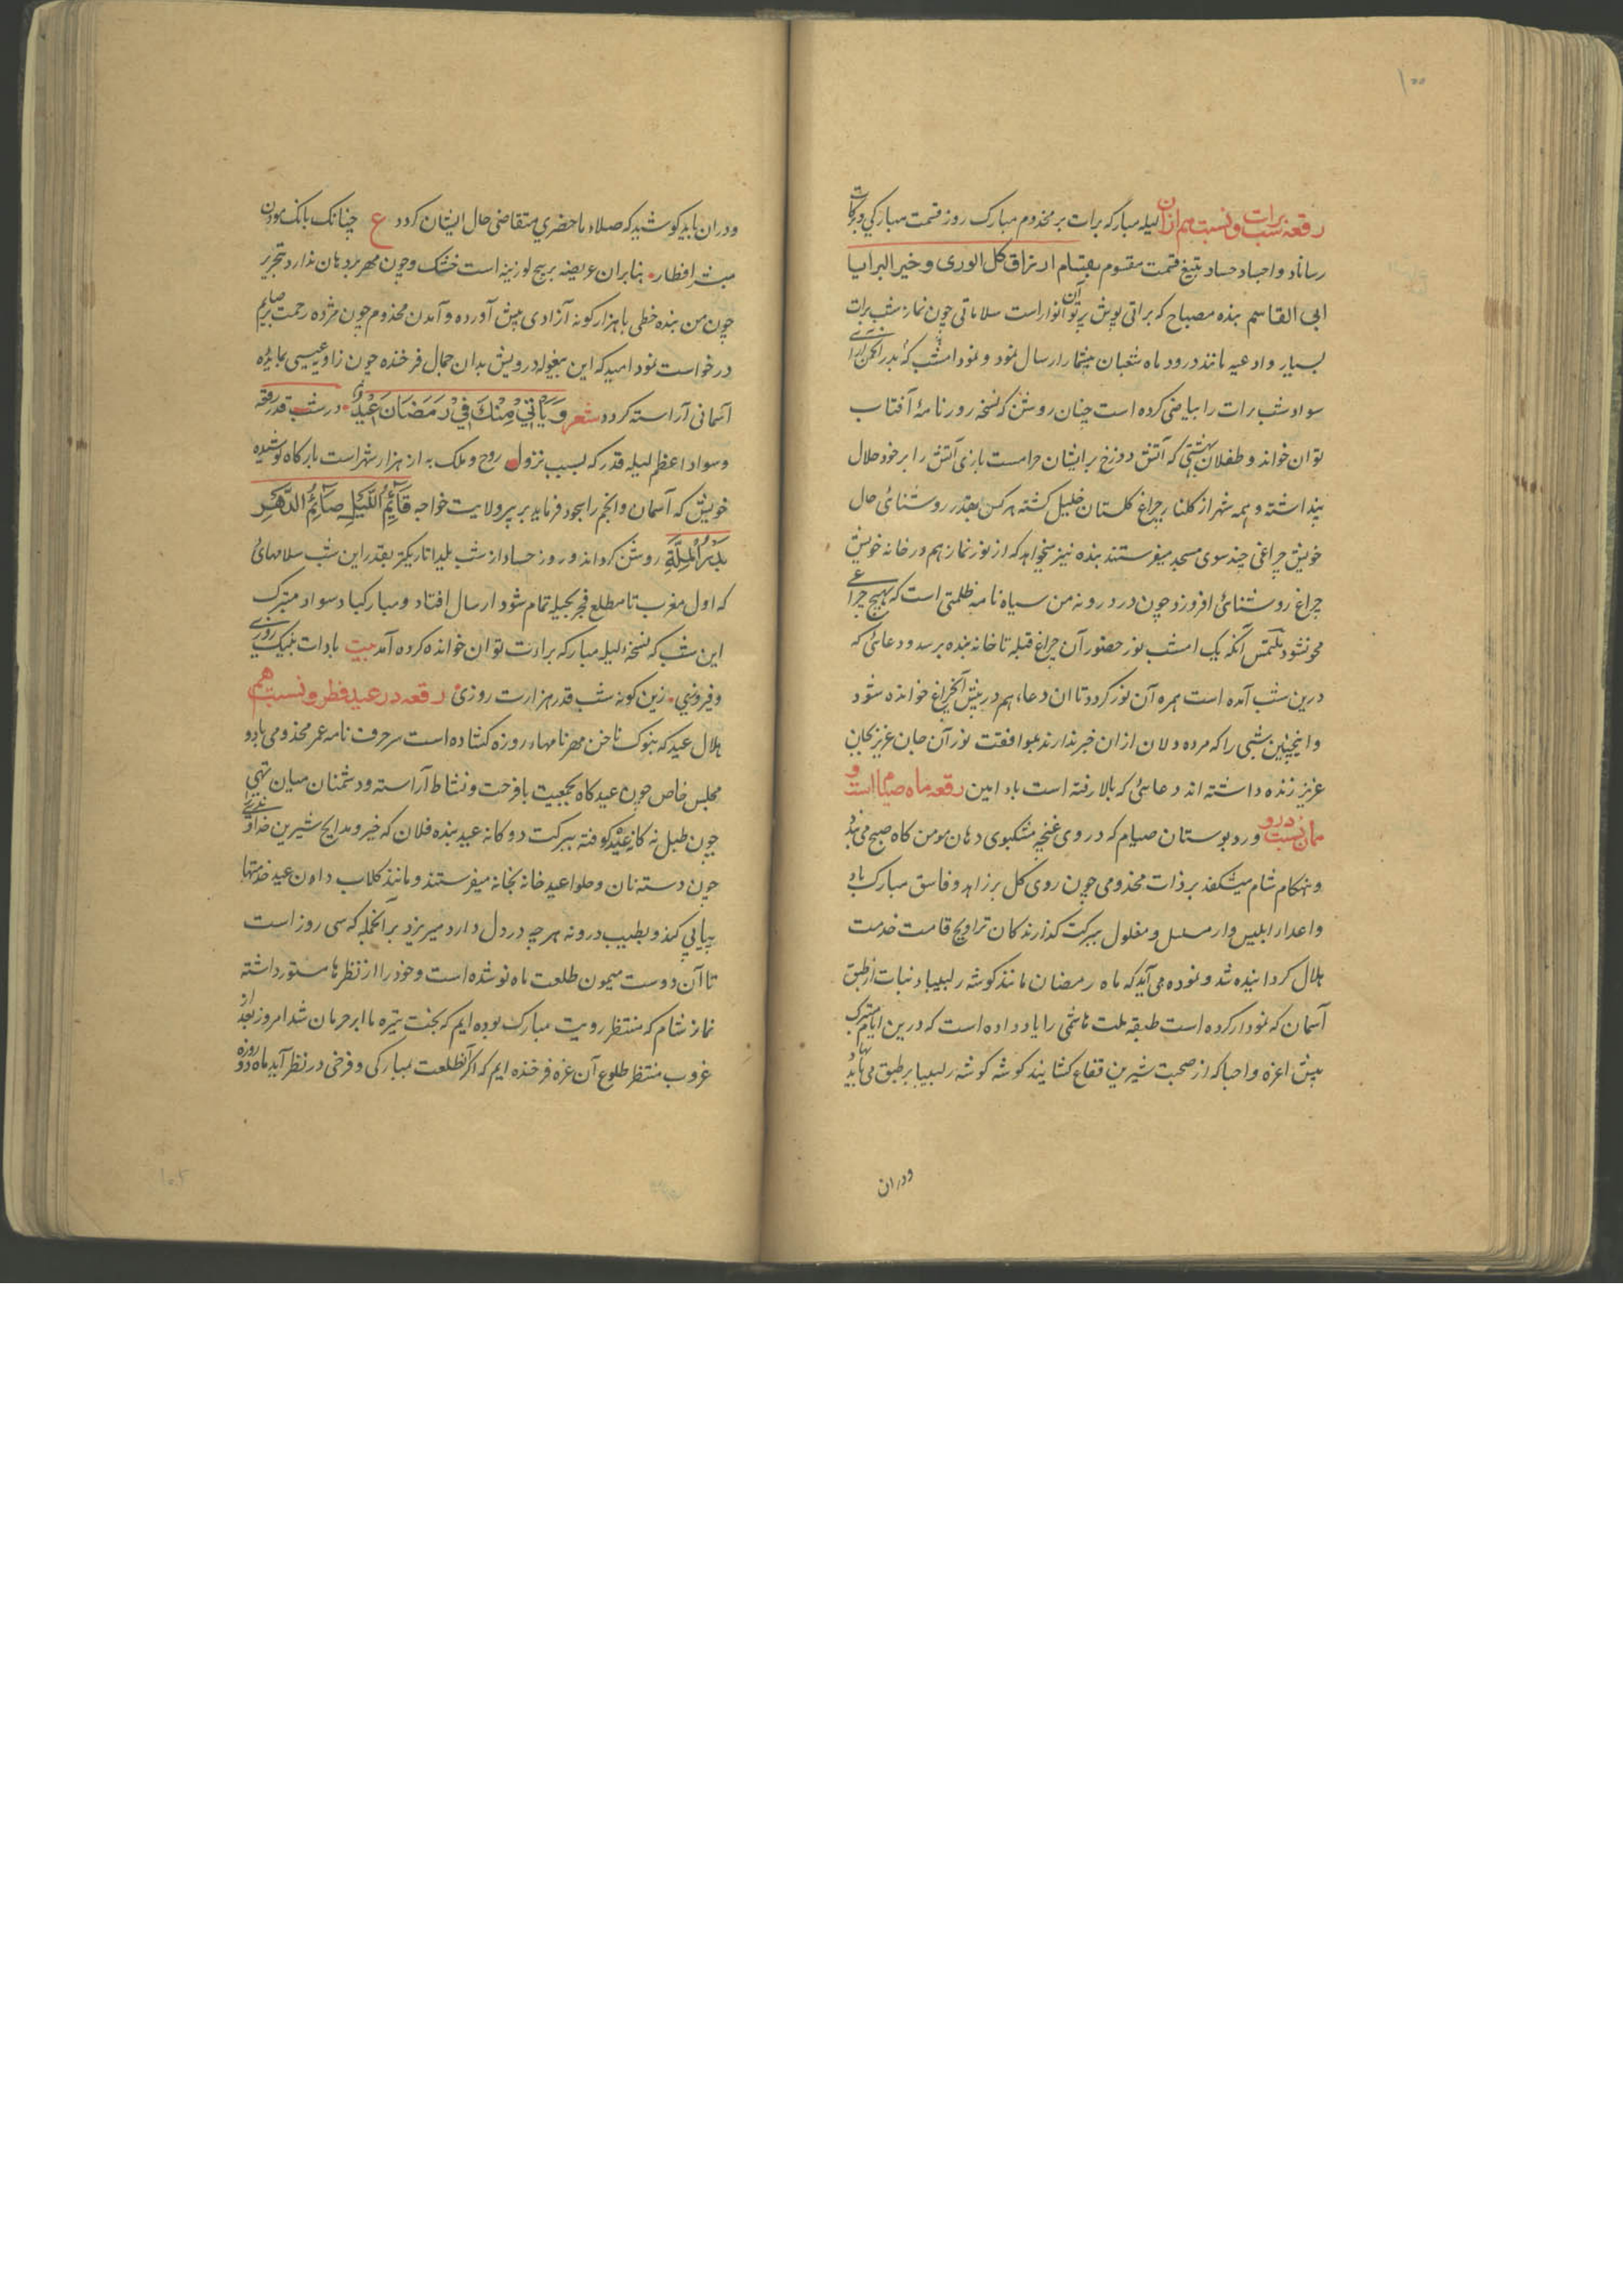 ۱۰۰
رقعه شب برات و نسبت هم ازان لیله مبارکه برات بر مخدوم مبارک روز قسمت مبارکی و برکات
رساناد و اجساد حساد بتیغ قسمت مقسوم بقسام ارزاق کل الوری و خیر البرایا
ابی القاسم بنده مصباح که براتی پرتو آن انوار است سلاماتی چون نماز شب برات
بسیار و ادعیه مانند درود ماه شعبان بیشمار ارسال نمود و نمود امشب که بدر انجمن آرای
سواد شب برات را بیاضی کرده است چنان روشن که نسخه روزنامهٔ آفتاب
توان خواند و طفلان بهشتی که آتش دوزخ بر ایشان حرامست بازی آتش را بر خود حلال
پنداشته و همه شهر از کلنار چراغ کلستان خلیل کشته هر کس بقدر روشنائی حال
خویش چراغی چند سوی مسجد میفرستند بنده نیز میخواهد که از نور نماز هم در خانه خویش
چراغ روشنائی افروزد چون در درونه من سیاه نامه ظلمتی است که بهیچ چراغی
محو نشود ملتمس آنکه یک امشب نور حضور آن چراغ قبله تا خانه بنده برسد و دعائی که
درین شب آمده است همره آن نور کردد تا ان دعا هم در پیش آنچراغ خوانده شود
و اینچنین شبی را که مرده دلان از ان خبر ندارند بموافقت نور آن جان عزیز بجان
عزیز زنده داشته اند دعائی که بالا رفته است باد امین رقعه ماه صیام است و
همان نسبت درو ورد بوستان صیام که در وی غنچه مشکبوی دهان مومن کاه صبح می بندد
و هنکام شام میشکفد بر ذات مخدومی چون روی کل بر زاهد و فاسق مبارک باد
و اعدا را ابلیس وار مسلسل و مغلول ببرکت کذارندکان تراویح قامت خدمت
هلال کردانیده شد و نموده می آید که ماه رمضان مانند کوشه رلبیبا و نبات از طبق
آسمان که نمودار کرده است طبقه ملت هاشمی را یاد داده است که درین ایام متبرک
پیش اعزه و احبا که از صحبت شیرین فقاع کشایند کوشه کوشه رلبیبا بر طبق می باید نهاد
ودران
ودران باید کوشید که صلاء ماحضری متقاضی حال ایشان کردد ع چنانک بانک موذن
مبشر افطار بنابران عریضه بریح لوزینه است خشک و چون مهر بر دهان ندارد تحریر
چون من بنده خطی با هزار کونه آزادی پیش آورده و آمدن مخدوم چون مژده رحمت صایم
درخواست نمود امید که این بیغوله درویش بدان جمال فرخنده چون زاویه عیسی بمایده
آسمانی آراسته کردد شعر وَيَأْتِيْ مِنْكَ فِيْ رَمَضَانَ عِيْدٌ در شب قدر رقعه
و سواد اعظم لیله قدر که بسبب نزول روح و ملک به از هزار شهر است بارکاه پوشیده
خویش که آسمان و انجم را بجود فرماید بر پیر ولایت خواجه قَائِمُ اللَّيْلِ صَائِمُ الدَّهْرِ
بَدْرُ الْمِلَّةِ روشن کرداند و روز حساد از شب یلدا تاریکتر بقدر این شب سلامهائی
که اول مغرب تا مطلع فجر بحیله تمام شود ارسال افتاد و مبارکباد سواد متبرک
این شب که نسخهٔ لیله مبارکه برادت توان خوانده کرده آمد بیت بادات بنیک روزی
و فیروزی زین کونه شب قدر هزارت روزی رقعه در عید فطر و نسبت هم
هلال عید که بنوک ناخن مهر نامهاء روزه کشاده است سر حرف نامه عمر مخدومی باد و
مجلس خاص چون عیدکاه بجمعیت با فرحت و نشاط آراسته و دشمنان میان تهی
چون طبل نه کانه عید کوفته ببرکت دوکانه عید بنده فلان که خیر و مدایح شیرین خداوندی
چون دسته نان و حلوا عید خانه بخانه میفرستند و مانند کلاب دادن عید خدمتها
پیاپی کند و بطیب درونه هرچه در دل دارد میریزد بر آنجمله که سی روز است
تا آن دوست میمون طلعت ماه نو شده است و خود را از نظرها مستور داشته
نماز شام که منتظر رویت مبارک بوده ایم که بخت تیره ما ابر حرمان شد امروز بعد از
غروب منتظر طلوع آن غره فرخنده ایم که اکر آنطلعت بمبارکی و فرخی در نظر آید ماه روزه
۱۰۲